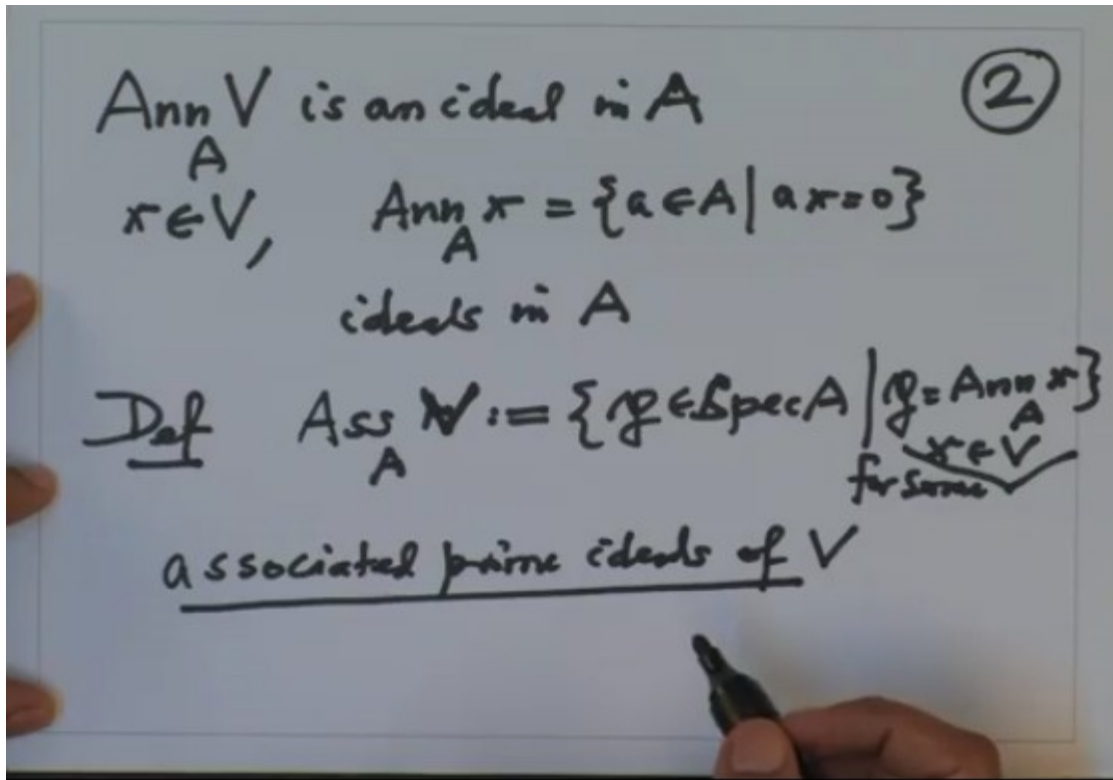 Ann_A V is an ideal in A
②
x ∈ V, Ann_A x = {a ∈ A | ax = 0}
ideals in A
Def Ass_A V := {𝔭 ∈ Spec A | 𝔭 = Ann_A x}
for some x ∈ V
associated prime ideals of V